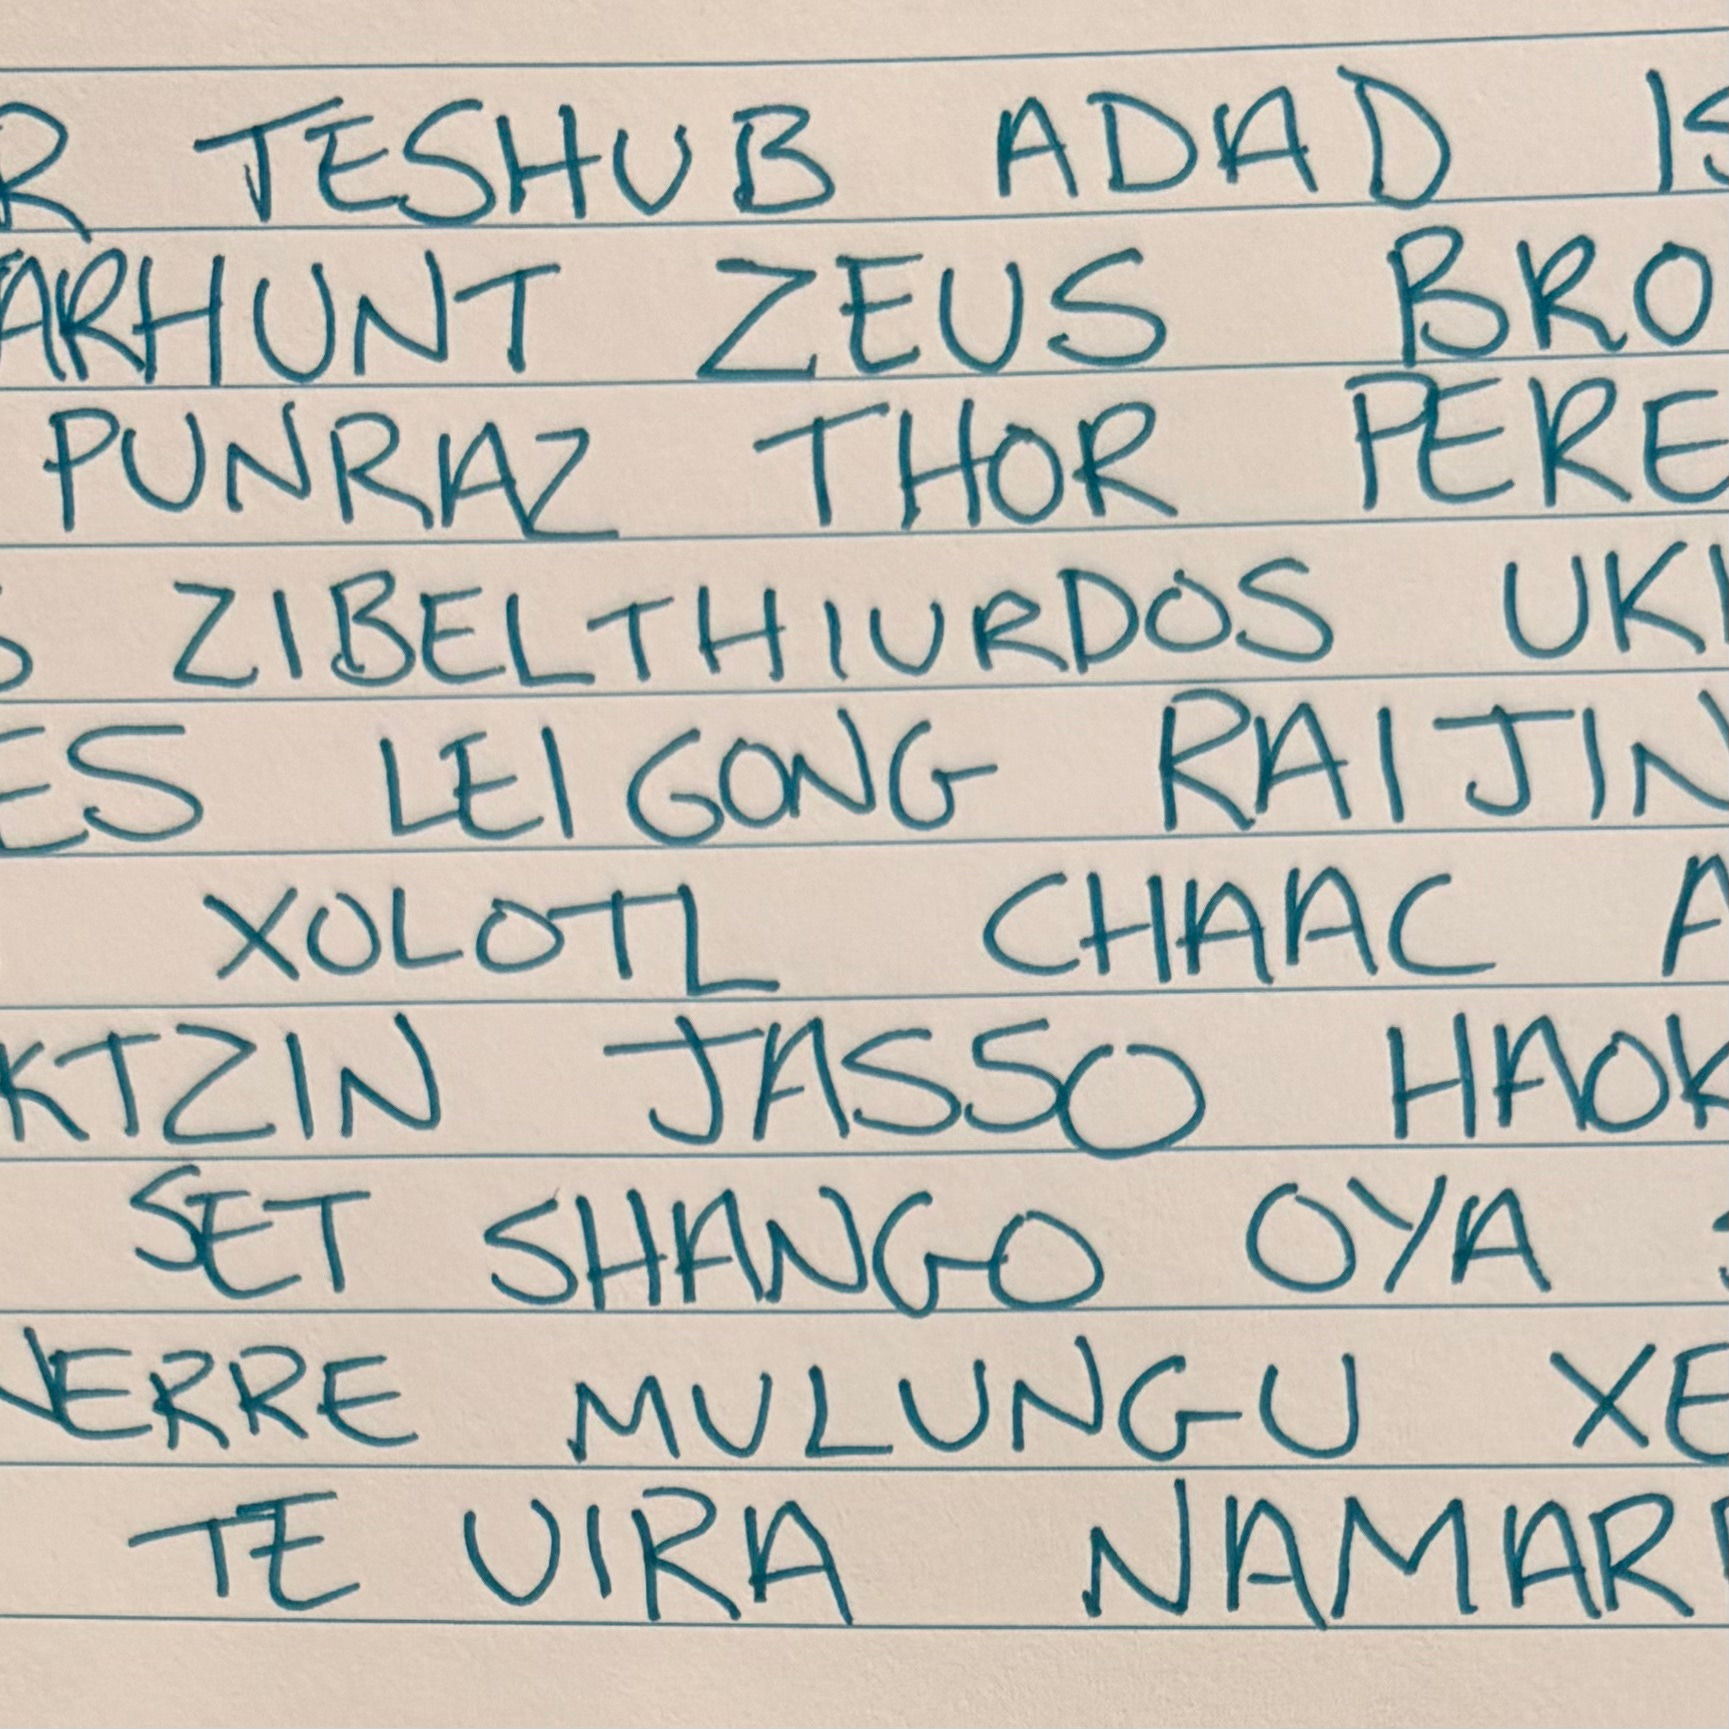 R TESHUB ADAD IS
ARHUNT ZEUS BRO
PUNRAZ THOR PERE
S ZIBELTHIURDOS UK
ES LEIGONG RAIJIN
XOLOTL CHAAC A
KTZIN JASSO HAOK
SET SHANGO OYA
VERRE MULUNGU XE
TE UIRA NAMAR